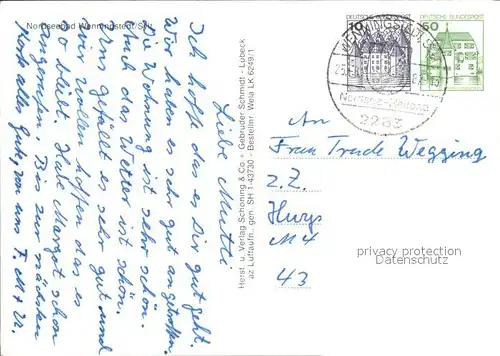 Nordseebad Wenningstedt/Sylt
Liebe Mutti
Ich hoffe das es Dir gut geht.
Wir haben es sehr gut angetroffen.
Die Wohnung ist sehr schön.
Auch das Wetter ist schön.
Uns gefällt es sehr gut und
wir wollen hoffen das es
so bleibt. Habe Margot schon
angerufen. Bis zur nächsten
alles Gute, von uns
Herst. u. Verlag Schöning & Co + Gebrüder Schmidt - Lübeck
az Luftaufn. gen. SH 1-43730 - Bestellnr. Weni LK 6249/1
DEUTSCHE BUNDESPOST
50
DEUTSCHE BUNDESPOST
WENNINGSTEDT
Nordsee-Heilbad
2283
An
Frau Trude Wegging
z.Z.
M4
43
privacy protection
Datenschutz